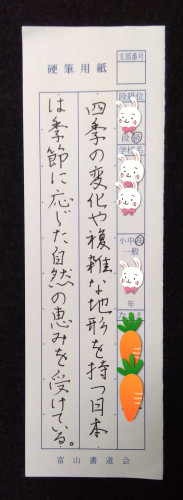 硬筆用紙
支部番号
段級位
段
学校名
小中高
一般
年
四季の変化や複雑な地形を持つ日本
は季節に応じた自然の恵みを受けている。
富山書道会